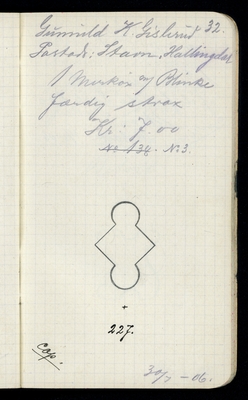 Gunnild K. Gislerud 32.
Postadr: Stavn, Hallingdal
1 Merkis m/ Blinke
færdig strax
Kr: 7.00
No 134. No 3.
+
227.
cop.
30/7 - 06.